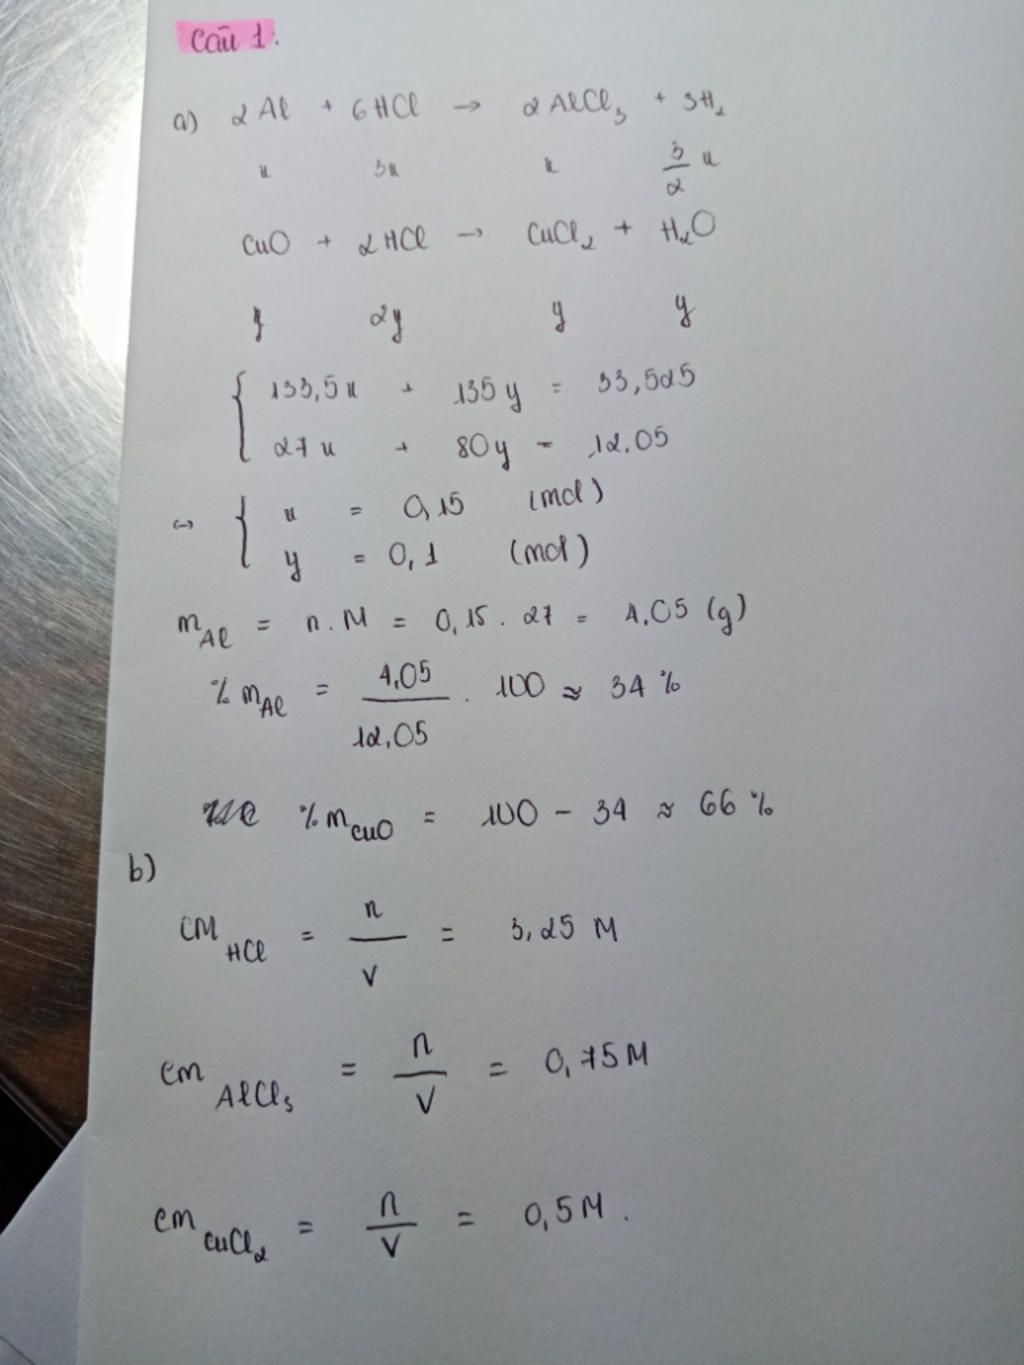 Câu 1.
a) 2Al + 6HCl → 2AlCl₃ + 3H₂
x 3x x 3/2 x
CuO + 2HCl → CuCl₂ + H₂O
y 2y y y
{ 133,5x + 135y = 33,525
27x + 80y = 12.05
↔ { x = 0,15 (mol)
y = 0,1 (mol)
m Al = n.M = 0,15 . 27 = 4.05 (g)
% m Al = 4,05/12,05 . 100 ≈ 34 %
% m CuO = 100 - 34 ≈ 66 %
b)
CM HCl = n/V = 3,25 M
CM AlCl₃ = n/V = 0,75M
CM CuCl₂ = n/V = 0,5M.